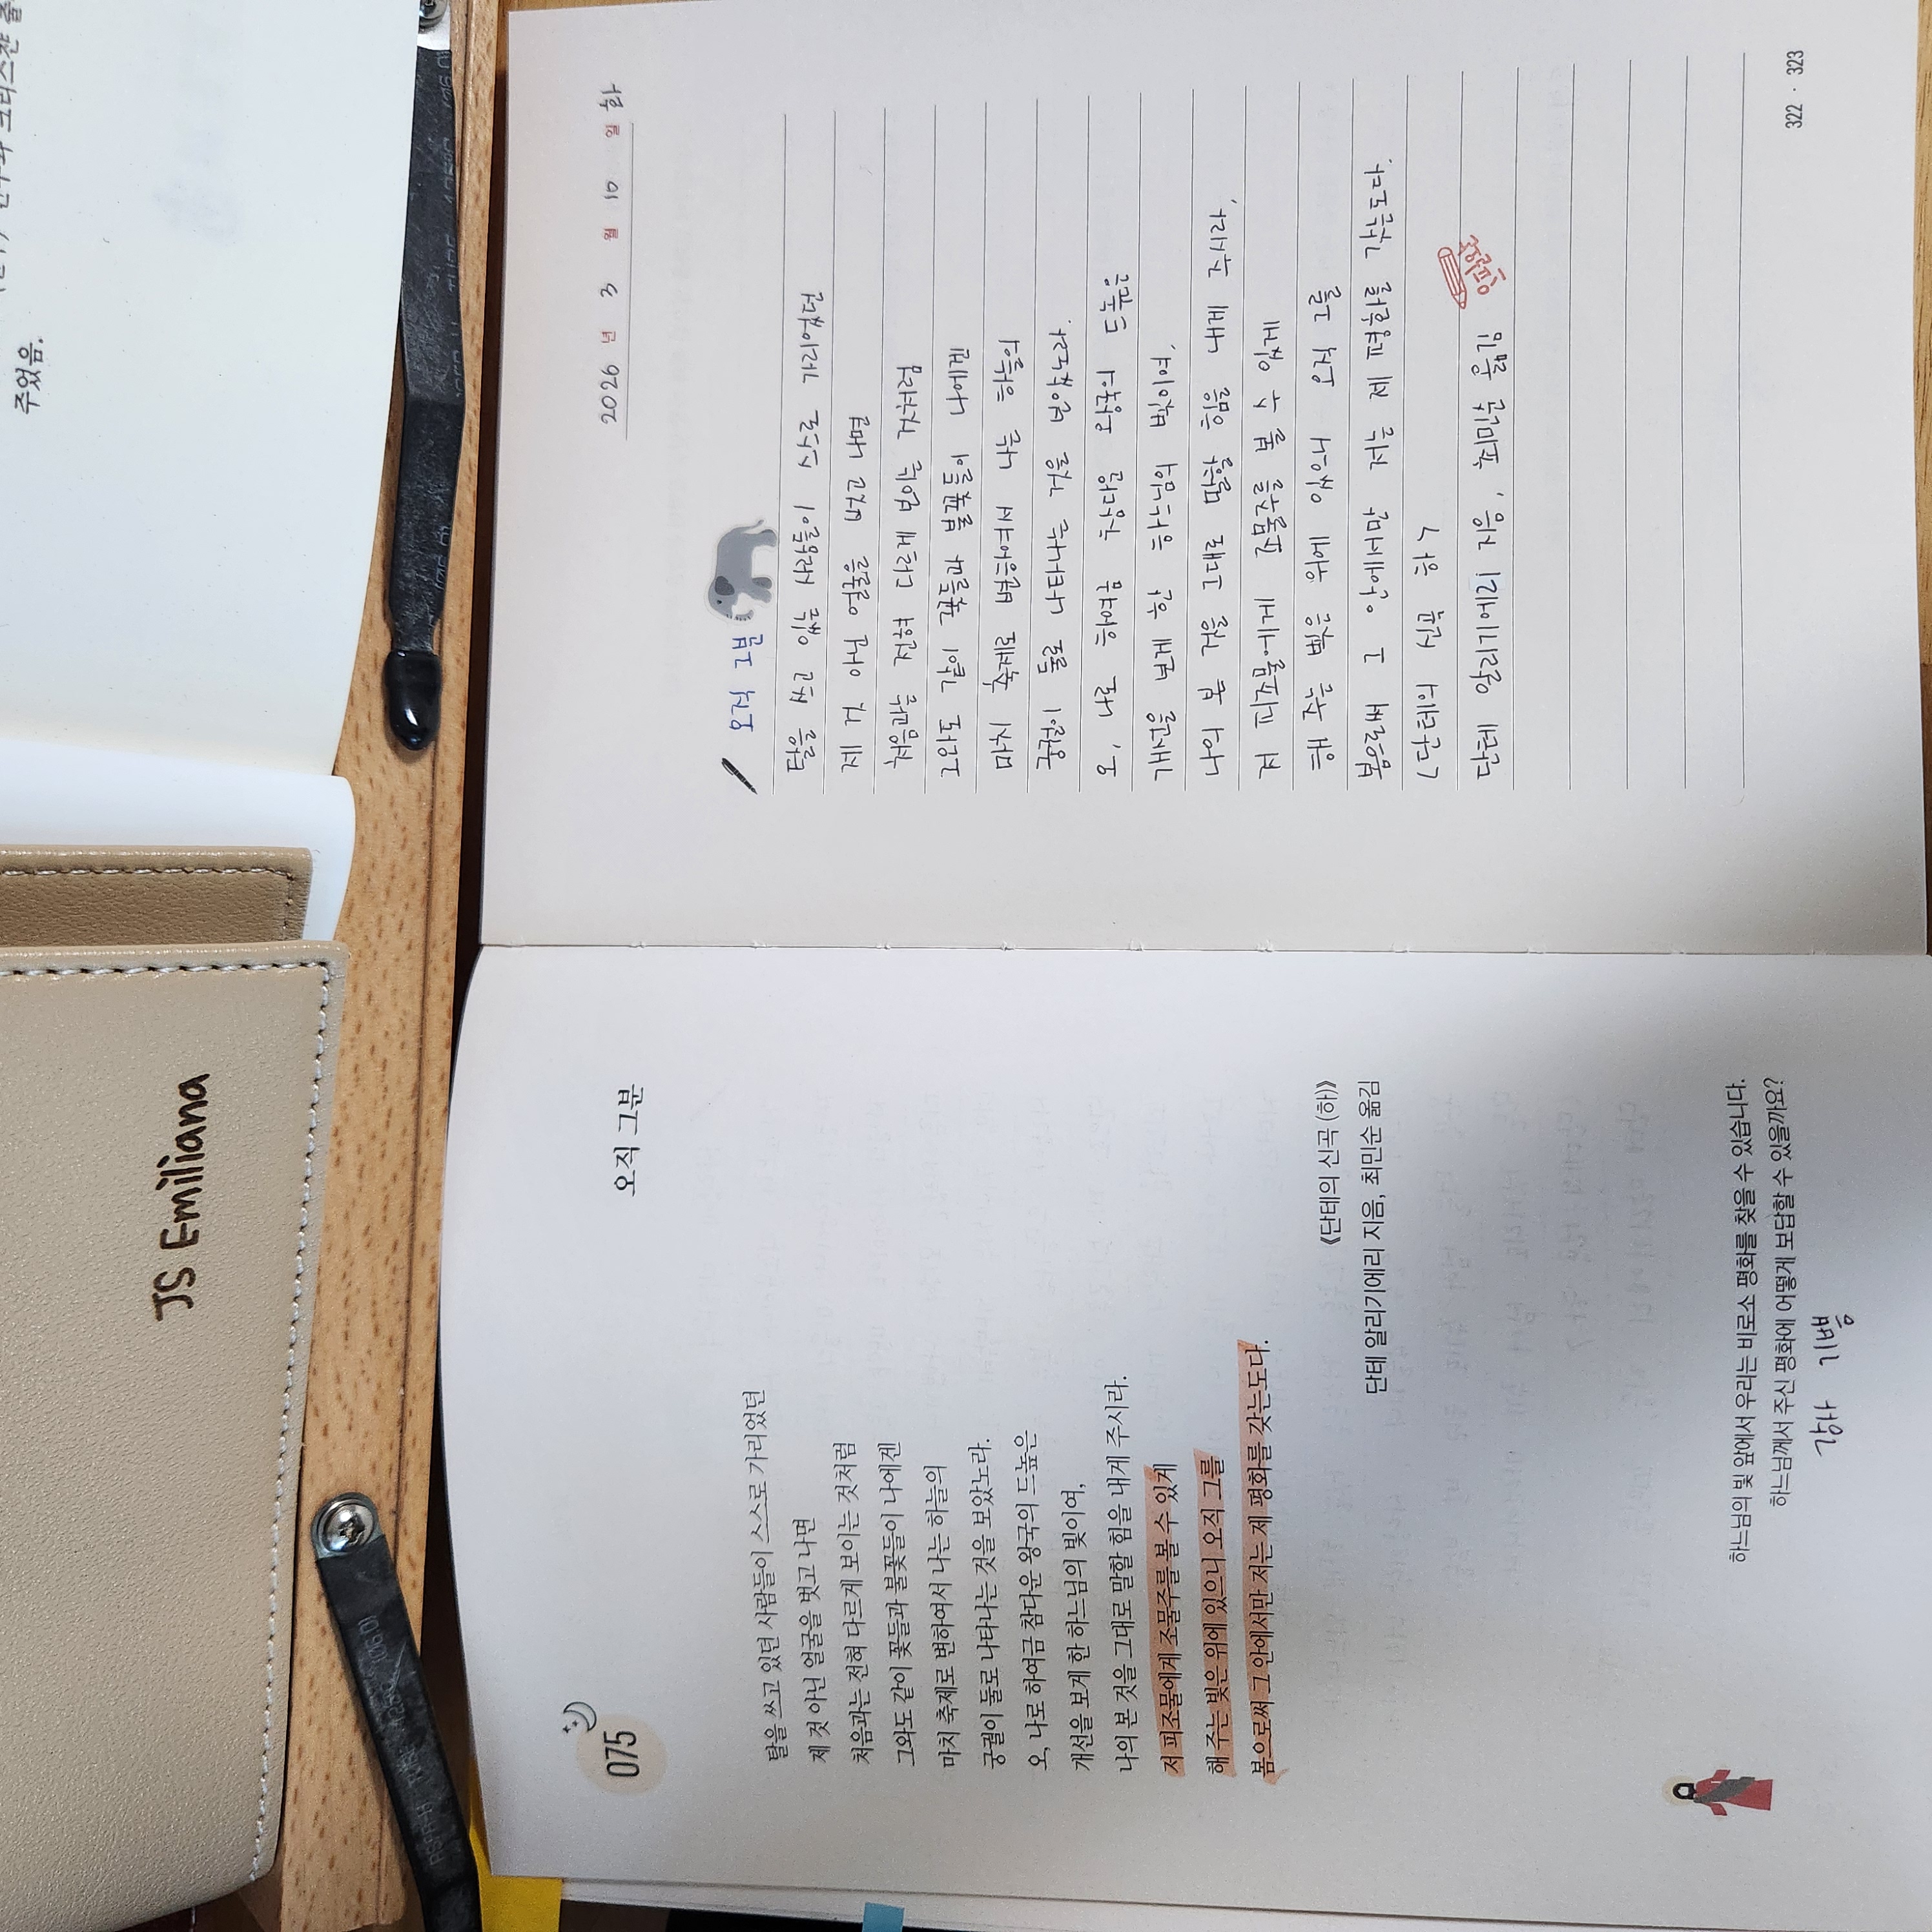 주었음.
JS Emiliana
075
오직 그분
탈을 쓰고 있던 사람들이 스스로 가리었던
제 것 아닌 얼굴을 벗고 나면
처음과는 전혀 다르게 보이는 것처럼
그와도 같이 꽃들과 불꽃들이 나에겐
마치 축제로 변하여서 나는 하늘의
궁궐이 둘로 나타나는 것을 보았노라.
오, 나로 하여금 참다운 왕국의 드높은
개선을 보게 한 하느님의 빛이여,
나의 본 것을 그대로 말할 힘을 내게 주시라.
저 피조물에게 조물주를 볼 수 있게
해 주는 빛은 위에 있으니 오직 그를
봄으로써 그 안에서만 저는 제 평화를 갖는도다.
《단테의 신곡 (하)》
단테 알리기에리 지음, 최민순 옮김
하느님의 빛 앞에서 우리는 비로소 평화를 찾을 수 있습니다.
하느님께서 주신 평화에 어떻게 보답할 수 있을까요?
감사 기쁨
2026 년 3 월 10 일 화
오직 그분
탈을 쓰고 있던 사람들이 스스로 가리었던
제 것 아닌 얼굴을 벗고 나면
처음과는 전혀 다르게 보이는 것처럼
그와도 같이 꽃들과 불꽃들이 나에겐
마치 축제로 변하여서 나는 하늘의
궁궐이 둘로 나타나는 것을 보았노라.
오, 나로 하여금 참다운 왕국의 드높은
개선을 보게 한 하느님의 빛이여,
나의 본 것을 그대로 말할 힘을 내게 주시라,
저 피조물에게 조물주를 볼 수 있게
해 주는 빛은 위에 있으니 오직 그를
봄으로써 그 안에서만 저는 제 평화를 갖는도다.
<단테의 신곡 하>
단테 알리기에리 지음, 최민순 옮김
322 · 323